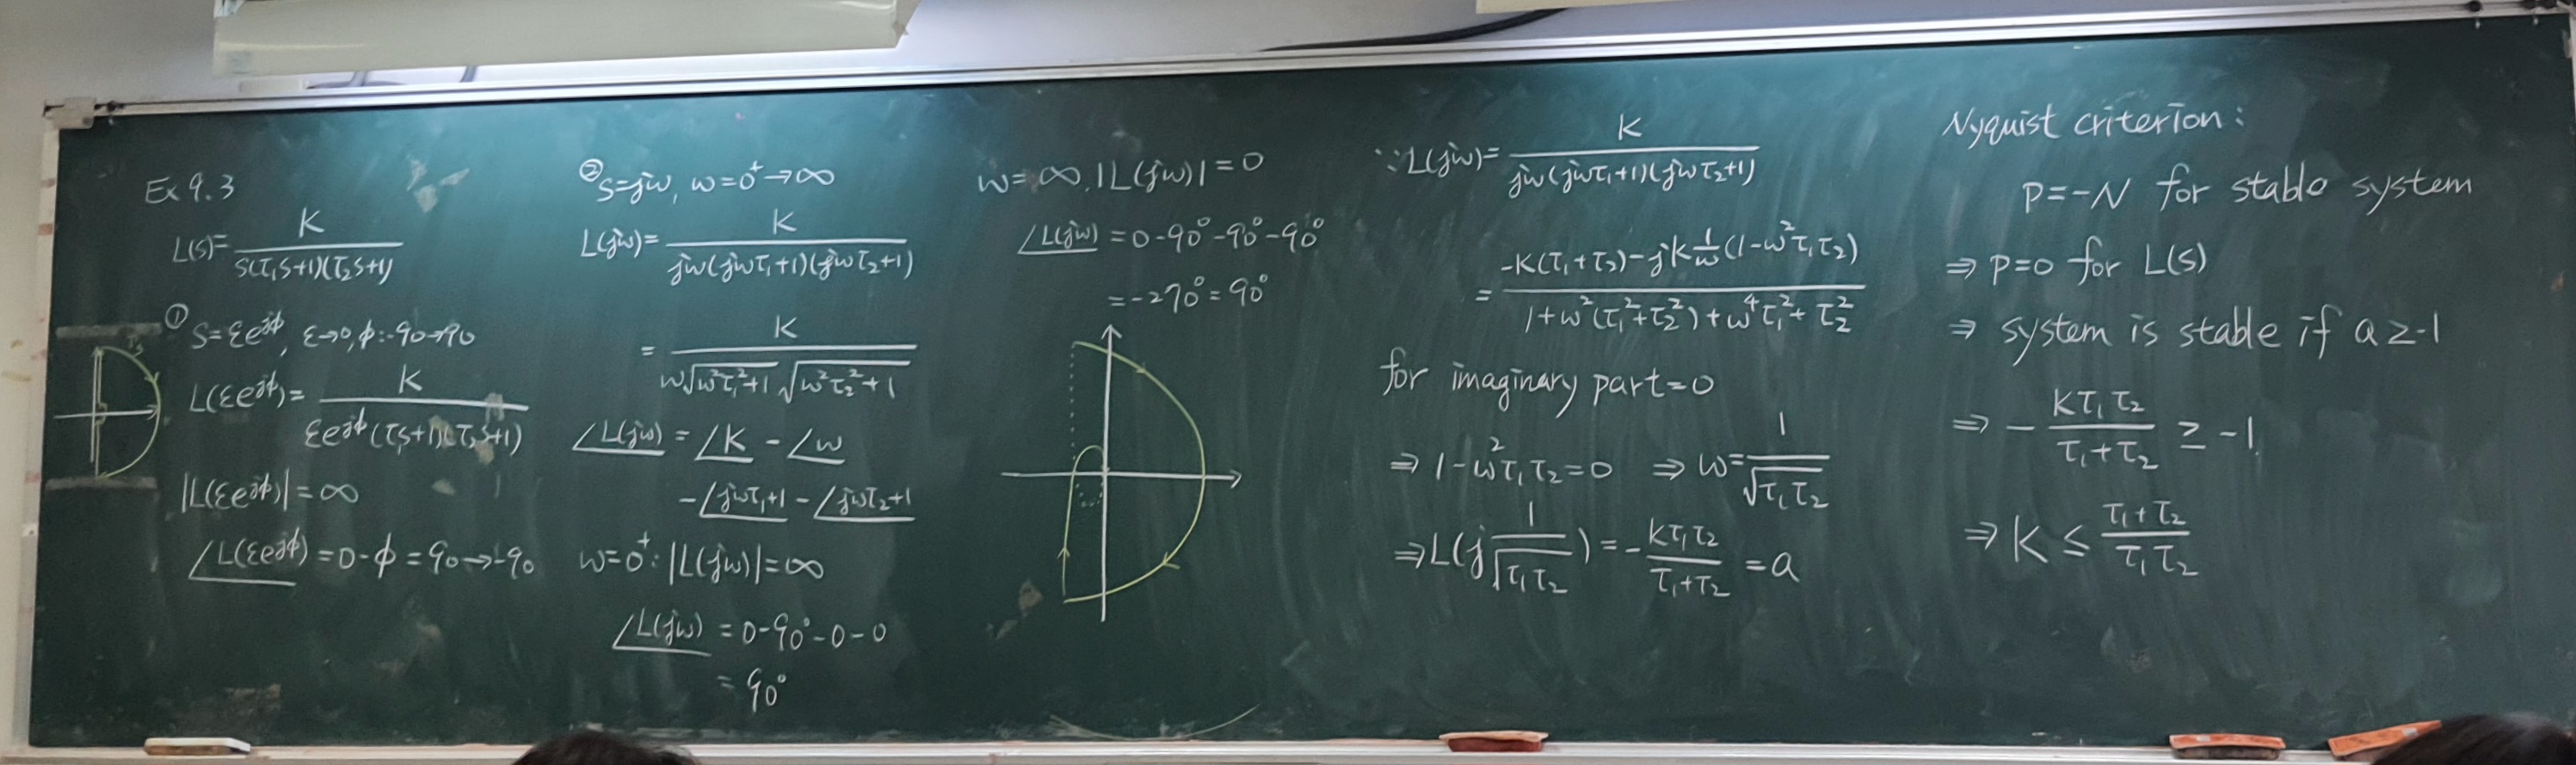 Ex 9.3
L(s)= K / s(τ₁s+1)(τ₂s+1)
① s=εe^{jϕ}, ε→0, ϕ:-90→90
Γs
L(εe^{jϕ})= K / εe^{jϕ}(τ₁s+1)(τ₂s+1)
|L(εe^{jϕ})|=∞
∠L(εe^{jϕ}) =0-ϕ=90→-90
② s=jω, ω=0⁺→∞
L(jω)= K / jω(jωτ₁+1)(jωτ₂+1)
= K / ω√(ω²τ₁²+1) √(ω²τ₂²+1)
∠L(jω) = ∠K - ∠ω
-∠jωτ₁+1 - ∠jωτ₂+1
ω=0⁺: |L(jω)|=∞
∠L(jω) = 0-90°-0-0
= 90°
ω=∞, |L(jω)|=0
∠L(jω) =0-90°-90°-90°
=-270°=90°
∵L(jω)= K / jω(jωτ₁+1)(jωτ₂+1)
= -K(τ₁+τ₂)-jK 1/ω (1-ω²τ₁τ₂) / 1+ω²(τ₁²+τ₂²)+ω⁴τ₁²+τ₂²
for imaginary part=0
⇒ 1-ω²τ₁τ₂=0 ⇒ ω= 1/√(τ₁τ₂)
⇒L(j 1/√(τ₁τ₂))=- Kτ₁τ₂ / τ₁+τ₂ =a
Nyquist criterion:
P=-N for stable system
⇒ P=0 for L(s)
⇒ system is stable if a≥-1
⇒ - Kτ₁τ₂ / τ₁+τ₂ ≥ -1
⇒ K ≤ τ₁+τ₂ / τ₁τ₂